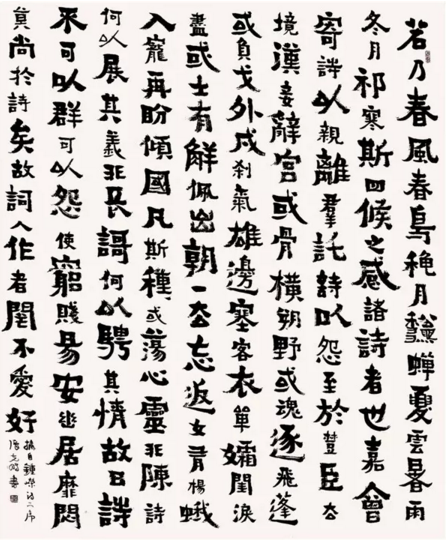 若乃春風春鳥穐月龝蟬夏雲暑雨
冬月祁寒斯四候之感諸詩者也嘉會
寄詩以親離羣託詩以怨至於楚臣去
境漢妾辭宮或骨橫朔野或魂逐飛蓬
或負戈外戍殺氣雄邊塞客衣單孀閨淚
盡或士有解佩出朝一去忘返女有揚蛾
入寵再盼傾國凡斯種或蕩心靈非陳詩
何以展其義非長歌何以騁其情故曰詩
來可以群可以怨使窮賤易安幽居靡悶
莫尚於詩矣故詞人作者罔不愛好
摘自鍾嶸詩品序